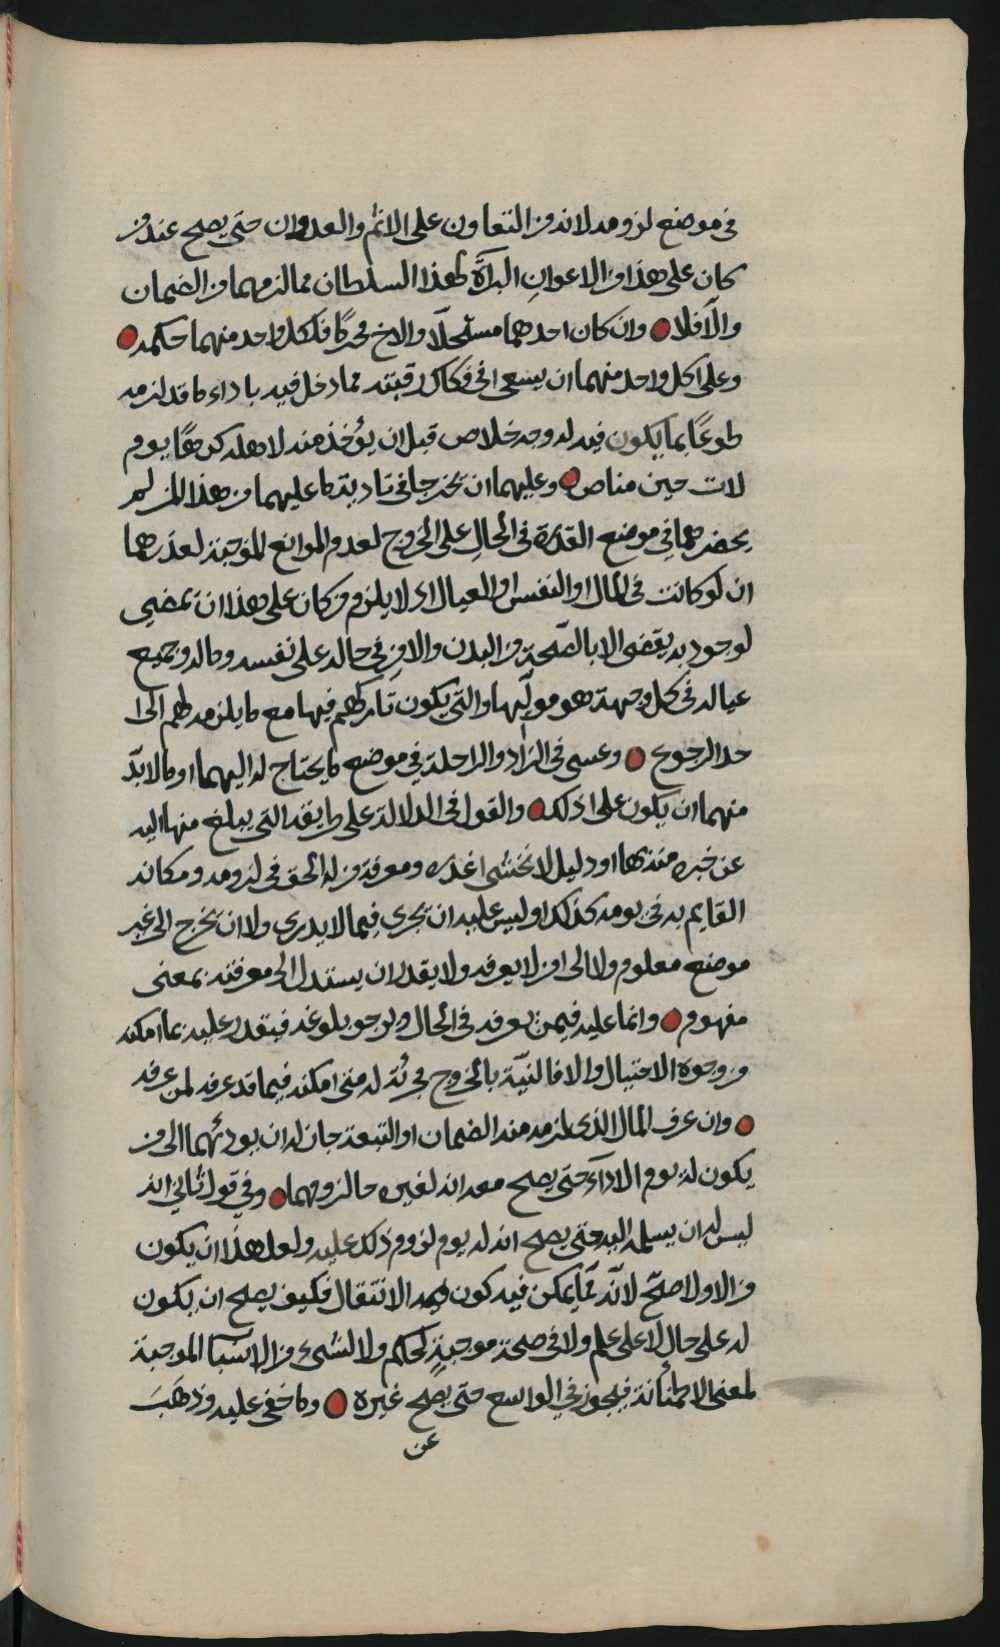 في موضع لزومه لانه من التعاون على الاثم والعدوان حتى يصح عند من
كان على هذا من الاعوان البراة لهذا السلطان مما لزمهما من الضمان
والا فلا وان كان احدهما مستحلا والاخ محرما فلكل واحد منهما حكمه
وعلى كل واحد منهما ان يسعى في فكاك رقبته مما دخل فيه باداء ما قد لزمه
طوعا بما يكون فيه له وجه خلاص قبل ان يؤخذ منه لاهله كرها يوم
لات حين مناص وعليهما ان يخرجا في تادية ما عليهما من هذا لمن لم
يحضرهما في موضع القدرة في الحال على الخروج لعدم الموانع الموجبة لعذرهما
ان لو كانت في المال او النفس او العيال اذ لا يلزم من كان على هذا ان يمضي
لوجود به يقضى الا بالصحة من البدن والامن في حاله على نفسه وماله وجميع
عياله في كل وجهة هو موليها والتي يكون تاركهم فيها مع ما يلزمه لهم الى
حد الرجوع وعسى في الزاد والراحلة في موضع ما يحتاج له اليهما او ما لا بد
منهما ان يكون على ذلك والقول في الدلالة على طريقه التي يبلغ منها اليه
عن خبره منه بها او دليل لا يخشى غدره ومعرفة من له الحق في لزومه ومكانه
القايم به في يومه كذلك اوليس عليه ان يجري فيما لا يدري ولا ان يخرج الى غير
موضع معلوم ولا الى من لا يعرفه ولا يقدر ان يستدل الى معرفته بمعنى
مفهوم وانما عليه فيمن يعرفه في الحال ويرجو بلوغه فيقدر عليه بما امكنه
من وجوه الاحتيال والا فالنية بالخروج مجزئة له متى امكنه فيما قد عرفه لمن عرفه
وان عرف المال الذي يلزمه منه الضمان او التبعة جاز له ان يودئهما الى من
يكون له يوم الاداء حتى يصح معه انه لغيره حال لزومهما وفي قول ثاني انه
ليس له ان يسلمه اليه حتى يصح انه له يوم لزوم ذلك عليه ولعل هذا ان يكون
من الاول اصح لانه مما يمكن فيه كون الانتقال فكيف يصح ان يكون
له على حال لا على علم ولا في صحة موجبة لحكم ولا لشيء من الاسباب الموجبة
لمعنى الاطمنانة فيجوز في الواسع حتى يصح غيره وما خفي عليه وذهب
عن